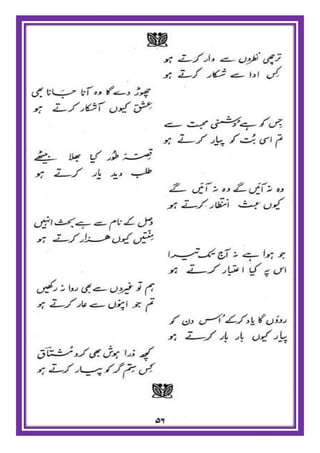 ترچھی نظروں سے وار کرتے ہو
کِس ادا سے شکار کرتے ہو
چھوڑ دے گا وہ آنا جانا بھی
عِشق کیوں آشکار کرتے ہو
جِس کو ہے دُشمنی محبت سے
تم اسی بُت کو پیار کرتے ہو
قِصۂ طُور کیا بھلا بیٹھے
طلب دید یار کرتے ہو
وہ نہ آئیں گے وہ نہ آئیں گے
کیوں عبث انتظار کرتے ہو
وصل کے نام سے ہے بحث انہیں
مِنتیں کیوں ھزار کرتے ہو
جو ہوا ہے نہ آج تک تیرا
اس پہ کیا اعتبار کرتے ہو
ہم تو غیروں سے بھی روا نہ رکھیں
تم جو اپنوں سے عار کرتے ہو
روؤں گا یاد کرکے اُس دن کو
پیار کیوں بار بار کرتے ہو
کچھ ذرا ہوش بھی کرو مُشتاق
کِس سِتم گر کو پیار کرتے ہو
۵۶